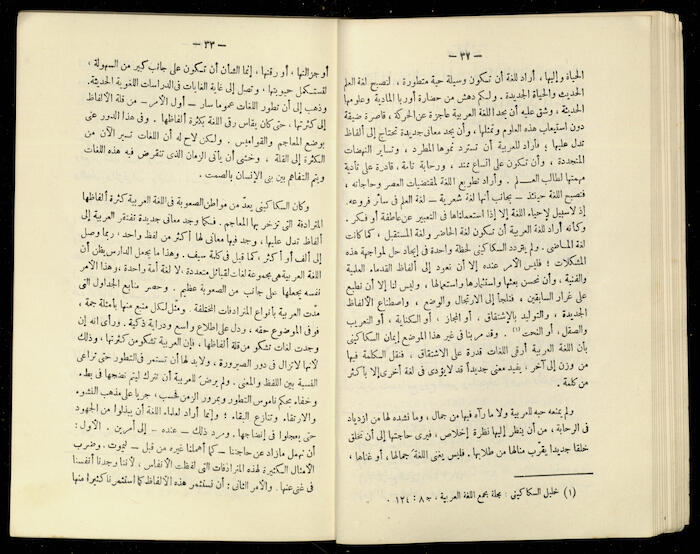 — ٣٢ —
الحياة وإليها ، أراد للغة أن تكون وسيلة حية متطورة ، لتصبح لغة العلم
الحديث والحياة الجديدة . ولكم دهش من حضارة أوربا المادية وعلومها
الحديثة ، وشق عليه أن يجد اللغة العربية عاجزة عن الحركة ، قاصرة ضيقة
دون استيعاب هذه العلوم وتمثلها ، وأن يجد معانى جديدة تحتاج إلى ألفاظ
تدل عليها ؛ فأراد للعربية أن تسترد نموها المطرد ، وتساير النهضات
المتجددة ، وأن تكون على اتساع ممتد ، ورحابة تامة ، قادرة على تأدية
مهمتها لطالب العـلم . وأراد تطويع اللغة لمقتضيات العصر وحاجاته ،
فتصبح اللغة حينئذ ــ بجانب أنها لغة شعرية ــ لغة العلم فى سائر فروعه.
إذ لا سبيل لإحياء اللغة إلا إذا استعملناها فى التعبير عن عاطفة أو فكر .
وكأنه أراد للغة العربية أن تكون لغة الحاضر ولغة المستقبل ، كما كانت
لغة الماضى . ولم يتردد السكاكينى لحظة واحدة فى إيجاد حل لمواجهة هذه
المشكلات ؛ فليس الأمر عنده إلا أن نعود إلى ألفاظ القدماء العلمية
والفنية ، وأن نحسن بعثها واستثمارها واستعمالها ، وليس لنا إلا أن نطبع
على غرار السابقين ، فنلجأ إلى الارتجال والوضع ، واصطناع الألفاظ
الجديدة ، والتوليد بالإشتقاق ، أو المجاز ، أو الكناية ، أو التعريب
والصقل ، أو النحت (١) . وقد مر بنا فى غير هذا الموضع إيمان السكاكينى
بأن اللغة العربية أرقى اللغات قدرة على الاشتقاق ، فنقل الكلمة فيها
من وزن إلى آخر ، يفيد معنى جديداً قد لا يؤدى فى لغة أخرى إلا بأكثر
من كلمة .
ولم يمنعه حبه للعربية ولا ما رآه فيها من جمال ، وما نشده لها من ازدياد
فى الرحابة ، من أن ينظر إليها نظرة إخلاص ، فيرى حاجتها إلى أن تخلق
خلقا جديدا يقرّب منالها من طلابها . فليس يعنى اللغة جمالها ، أو غناها ،
(١) خليل السكاكينى : مجلة مجمع اللغة العربية ، جـ ٨ : ١٢٤ .
— ٣٣ —
أو جزالتها ، أو رقتها ، إنما الشأن أن تكون على جانب كبير من السهولة ،
لتستكمل حيويتها ، وتصل إلى غاية الغايات فى الدراسات اللغوية الحديثة.
وذهب إلى أن تطور اللغات عموما سار ــ أول الأمر ــ من قلة الألفاظ
إلى كثرتها ، حتى كان يقاس رقى اللغة بكثرة ألفاظها . وفى هذا الدور عنى
بوضع المعاجم والقواميس . ولكن لاح له أن اللغات تسير الآن من
الكثرة إلى القلة ، وخشى أن يأتى الزمان الذى تنقرض فيه هذه اللغات
ويتم التفاهم بين بنى الإنسان بالصمت .
وكان السكاكينى يعدّ من مواطن الصعوبة فى اللغة العربية كثرة ألفاظها
المترادفة التى تزخر بها المعاجم . فكما وجد معانى جديدة تفتقر العربية إلى
ألفاظ تدل عليها ، وجد فيها معانى لها أكثر من لفظ واحد ، ربما وصل
إلى ألف أو أكثر ، كما قيل فى كلمة سيف . وهذا ما يجعل الدارس يظن أن
اللغة العربية هى مجموعة لغات لقبائل متعددة ، لا لغة أمة واحدة ، وهذا الأمر
نفسه يجعلها على جانب من الصعوبة عظيم . وحصر منابع الجداول التى
مدّت العربية بأنواع المترادفات المختلفة . ومثّل لكل منبع منها بأمثلة جمة ،
فوفى الموضوع حقه ، ودل على اطلاع واسع ودراية ذكية . ورأى انه إن
وجدت لغات تشكو من قلة ألفاظها ، فإن العربية تشكو من كثرتها ، وذلك
لأنها لا تزال فى دور الصيرورة ، ولابد لها أن تستمر فى التطور حتى تراعى
النسبة بين اللفظ والمعنى . ولم يرضَ للعربية أن تترك ليتم نضجها فى بطء
وخفاء بحكم ناموس التطور وبمرور الزمن فحسب ، جريا على مذهب النشوء
والارتقاء ، وتنازع البقاء ؛ وإنما أراد لعلماء اللغة أن يبذلوا من الجهود
حتى يعجلوا فى إنضاجها . ومرد ذلك ــ عنده ــ إلى أمرين . الأول :
أن نهمل مازاد عن حاجتنا ــ كما أهملنا غيره من قبل ــ ليموت . وضرب
الأمثال الكثيرة لهذه المترادفات التى لفظت الأنفاس ، لأننا وجدنا أنفسنا
فى غنى عنها . والأمر الثانى : أن نستثمر هذه الألفاظ كما استثمرنا كثيرا منها